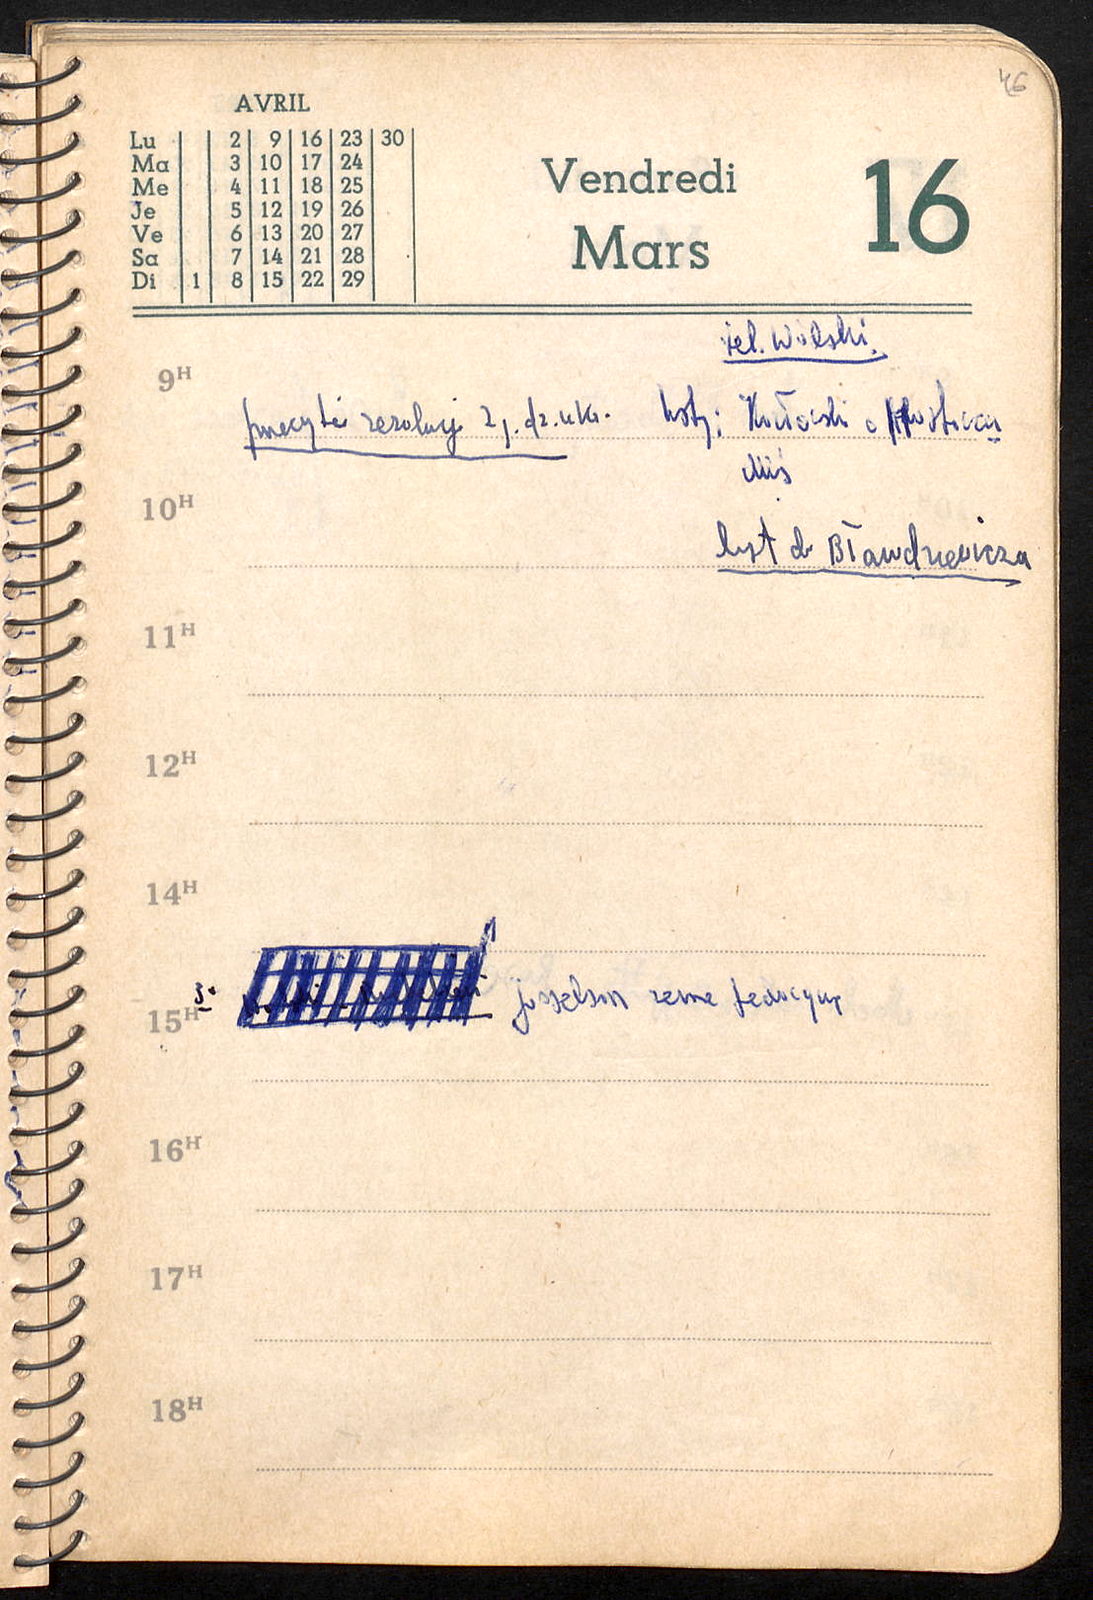 46
AVRIL
Lu 2 9 16 23 30
Ma 3 10 17 24
Me 4 11 18 25
Je 5 12 19 26
Ve 6 13 20 27
Sa 7 14 21 28
Di 1 8 15 22 29
Vendredi 16
Mars
tel. Wolski.
9H
rezolucji zj. dz. uk. listy:
10H
list do Bławdziewicza
11H
12H
14H
3·
15H Josselson
16H
17H
18H